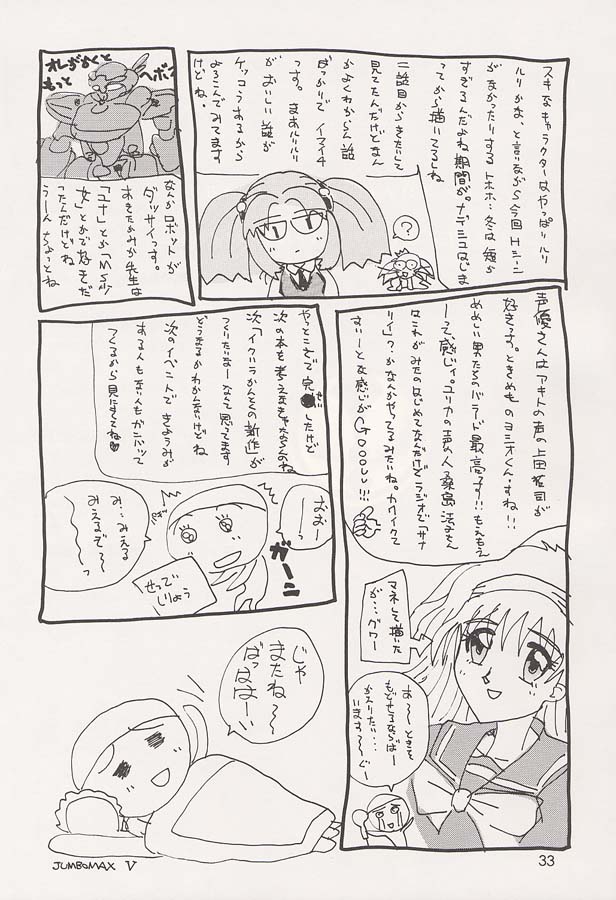 スキなキャラクターはやっぱりルリ
ルリかな、と言いながら今回Hシーン
がなかったりする トホホ…冬は短か
すぎるんだよね期間が。ナデシコはじま
ってから描いてるしね
二話目からきたいして
見てたんだけどまん
かよくわからん話
ばっかりで イマイチ
っす。まあルリルリ
がおいしい話が
ケッコウあるから
よろこんでみてます
けどね・
?
オレがかくと
もっと
ヘボス
なんかロボットが
ダッサイっす。
あきたかみか先生は
「ユナ」とか「MS少
女」とかで好きだ
ったんだけどね
うーん ちょっとね
声優さんはアキトの声の上田祐司が
好きっす。ときめものヨシオくん・すね!!
めめしい男たちのバラード最高っす!!もえもえ
ーって、感じィ。ユリカの声の人桑島法子さん
はこれがみたのはじめてなんだけどラジオで「サナ
リイ」っかなんかやってるみたいね。カワイクて
すぃーとな感じがGooouu!!!
マネして描いた
が…グワー
あ〜〜ときを
もどせるならばー
かえりたい…
います〜〜ぐー
やっとここで完(かん)したけど
次の本を考えなきゃならんのね
次「イクイラかんとくの新作」が
つくりたいなーなんて思ってます
どうなるかわかんないけどね
次のイベントできょうみが
ある人もない人もガンバッて
つくるから見にきてね♥
おおー
ーっ
み…みえる
みえるぞ〜
〜っ
ガーン
せってい
しりょう
じゃ
またね〜
ばっははーい
JUMBOMAX V
33